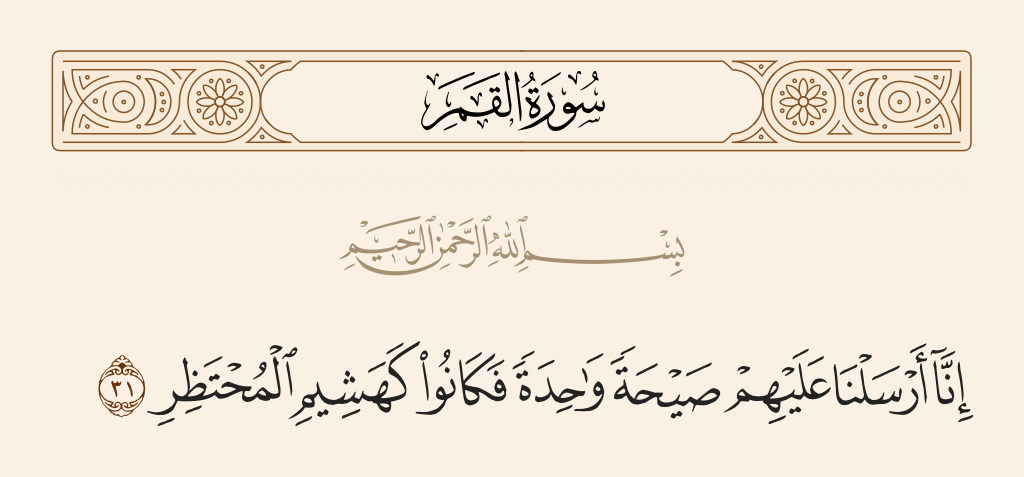 سُورَةُ القَمَرِ
بِسْمِ ٱللَّهِ ٱلرَّحْمَٰنِ ٱلرَّحِيمِ
إِنَّآ أَرْسَلْنَا عَلَيْهِمْ صَيْحَةً وَٰحِدَةً فَكَانُوا۟ كَهَشِيمِ ٱلْمُحْتَظِرِ ٣١